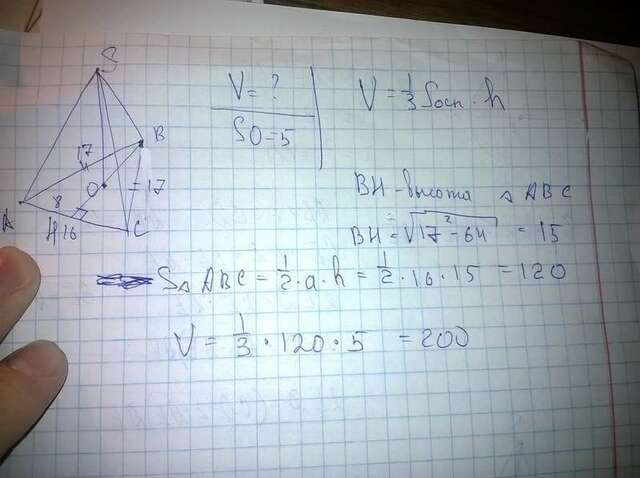 S
B
17
O
17
A
8
H
16
C
V = ?
SO = 5
V = 1/3 Sосн · h
BH - высота △ ABC
BH = √17² - 64 = 15
S△ ABC = 1/2 · a · h = 1/2 · 16 · 15 = 120
V = 1/3 · 120 · 5 = 200